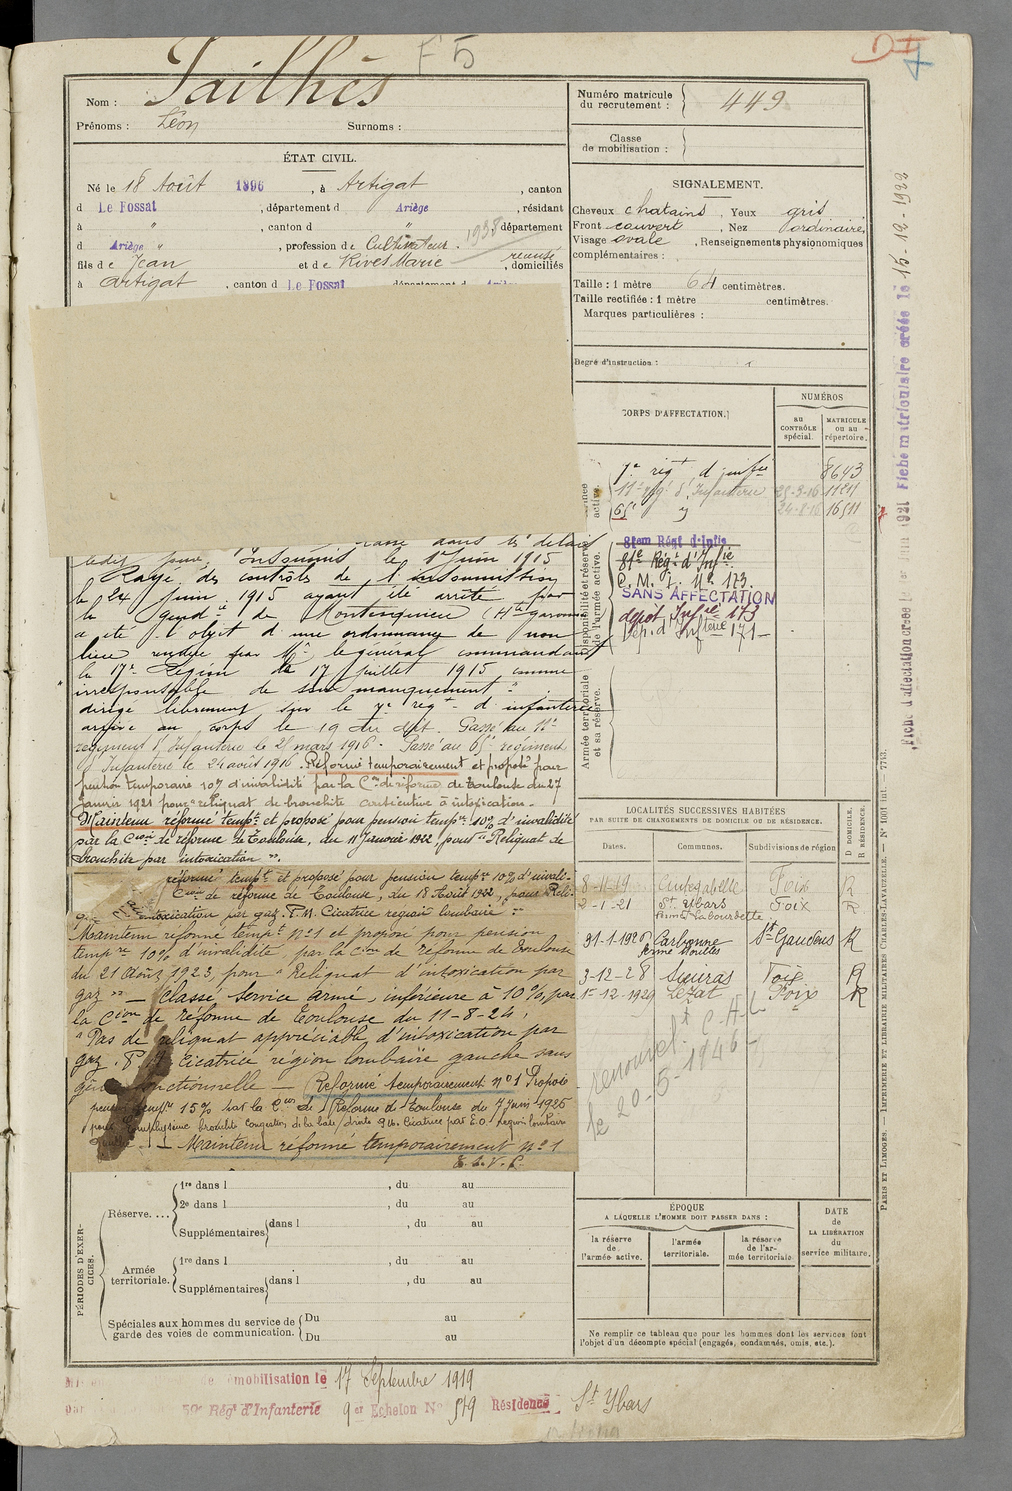 F 5
Nom : Tailhès
Prénoms : Léon Surnoms :
Numéro matricule du recrutement : 449
Classe de mobilisation :
ÉTAT CIVIL.
Né le 18 Août 1896, à Artigat, canton
d Le Fossat, département d Ariège, résidant
à " , canton d " département
d Ariège " , profession de Cultivateur. 1938
fils de Jean et de Rives Marie , domiciliés
à Artigat, canton d Le Fossat
SIGNALEMENT.
Cheveux chatains, Yeux gris
Front couvert, Nez ordinaire,
Visage ovale, Renseignements physionomiques
complémentaires :
Taille : 1 mètre 64 centimètres.
Taille rectifiée : 1 mètre centimètres.
Marques particulières :
Degré d'instruction :
CORPS D'AFFECTATION.
NUMÉROS
au CONTRÔLE spécial.
MATRICULE ou au répertoire.
7e régt d'infie 8643
11e régt d'Infanterie 25-3-16 11211
65e " 24-8-16 16511
81em Régt d'Infie
81e Régt d'Infie
C. M. I. No 173.
SANS AFFECTATION
dépôt Infie 173
Dép. d'Infterie 171
Disponibilité et réserve de l'armée active.
Armée territoriale et sa réserve.
dans les délais
ledit jour, Insoumis le 1er Juin 1915
Rayé des contrôles de l'insoumission
le 24 Juin 1915 ayant été arrêté par
la gendie de Montesquieu (Hte garonne
a été l'objet d'une ordonnance de non
lieu rendue par Mr le général commandant
la 17e Région le 17 juillet 1915 comme
irresponsable de son manquement.
dirigé librement sur le 7e régt d'infanterie
arrivé au corps le 19 du dt. Passé au 11e
régiment d'Infanterie le 25 mars 1916. Passé au 65e régiment
d'Infanterie le 24 août 1916. Réformé temporairement et proposé pour
pension temporaire 10% d'invalidité par la Con de réforme de Toulouse du 27
Janvier 1921 pour "reliquat de bronchite consécutive à intoxication.
Maintenu réformé tempt et proposé pour pension tempre 10% d'invalidité
par la Cion de réforme de Toulouse, du 11 Janvier 1922, pour "Reliquat de
bronchite par intoxication".
réformé tempt et proposé pour pension tempre 10% d'invali-
Cion de réforme de Toulouse, du 18 Août 1922, pour Reli-
intoxication par gaz. P.M. Cicatrice région lombaire "
Maintenu réformé tempt no 1 et proposé pour pension
tempre 10% d'invalidité par la Cion de réforme de Toulouse
du 21 Août 1923, pour "Reliquat d'intoxication par
gaz" — Classé Service armé, inférieure à 10%, par
la Cion de réforme de Toulouse du 11-8-24 :
"Pas de reliquat appréciable d'intoxication par
gaz. P.M. Cicatrice région lombaire gauche sans
gêne fonctionnelle — Reformé temporairement no 1 Proposé
pension tempre 15% par la Con de Réforme de Toulouse du 7 Juin 1926
Maintenu réformé temporairement no 1
LOCALITÉS SUCCESSIVES HABITÉES
PAR SUITE DE CHANGEMENTS DE DOMICILE OU DE RÉSIDENCE.
Dates. Communes. Subdivisions de région
D DOMICILE. R RÉSIDENCE.
8-11-19 Cintegabelle Foix R
2-1-21 St Ybars Foix R
ferme Labourdette
31-1-1926 Carbonne St Gaudens R
3-12-28 Sieuras Foix R
1er-12-1929 Lézat Foix R
le 20-5-1946
ÉPOQUE
A LAQUELLE L'HOMME DOIT PASSER DANS :
la réserve de l'armée active.
l'armée territoriale.
la réserve de l'armée territoriale
DATE de LA LIBÉRATION du service militaire.
Ne remplir ce tableau que pour les hommes dont les services font
l'objet d'un décompte spécial (engagés, condamnés, omis, etc.).
PÉRIODES D'EXERCICES.
Réserve....
1re dans l , du au
2e dans l , du au
Supplémentaires dans l , du au
Armée territoriale.
1re dans l , du au
Supplémentaires dans l , du au
Spéciales aux hommes du service de garde des voies de communication.
Du au
Du au
émobilisation le 17 Septembre 1919
59e Régt d'Infanterie 9e Echelon No 519 Résidence St Ybars
Fiche matriculaire créée le 15-12-1922
PARIS ET LIMOGES. — IMPRIMERIE ET LIBRAIRIE MILITAIRES CHARLES-LAVAUZELLE. — No 1001 int. — 7713.